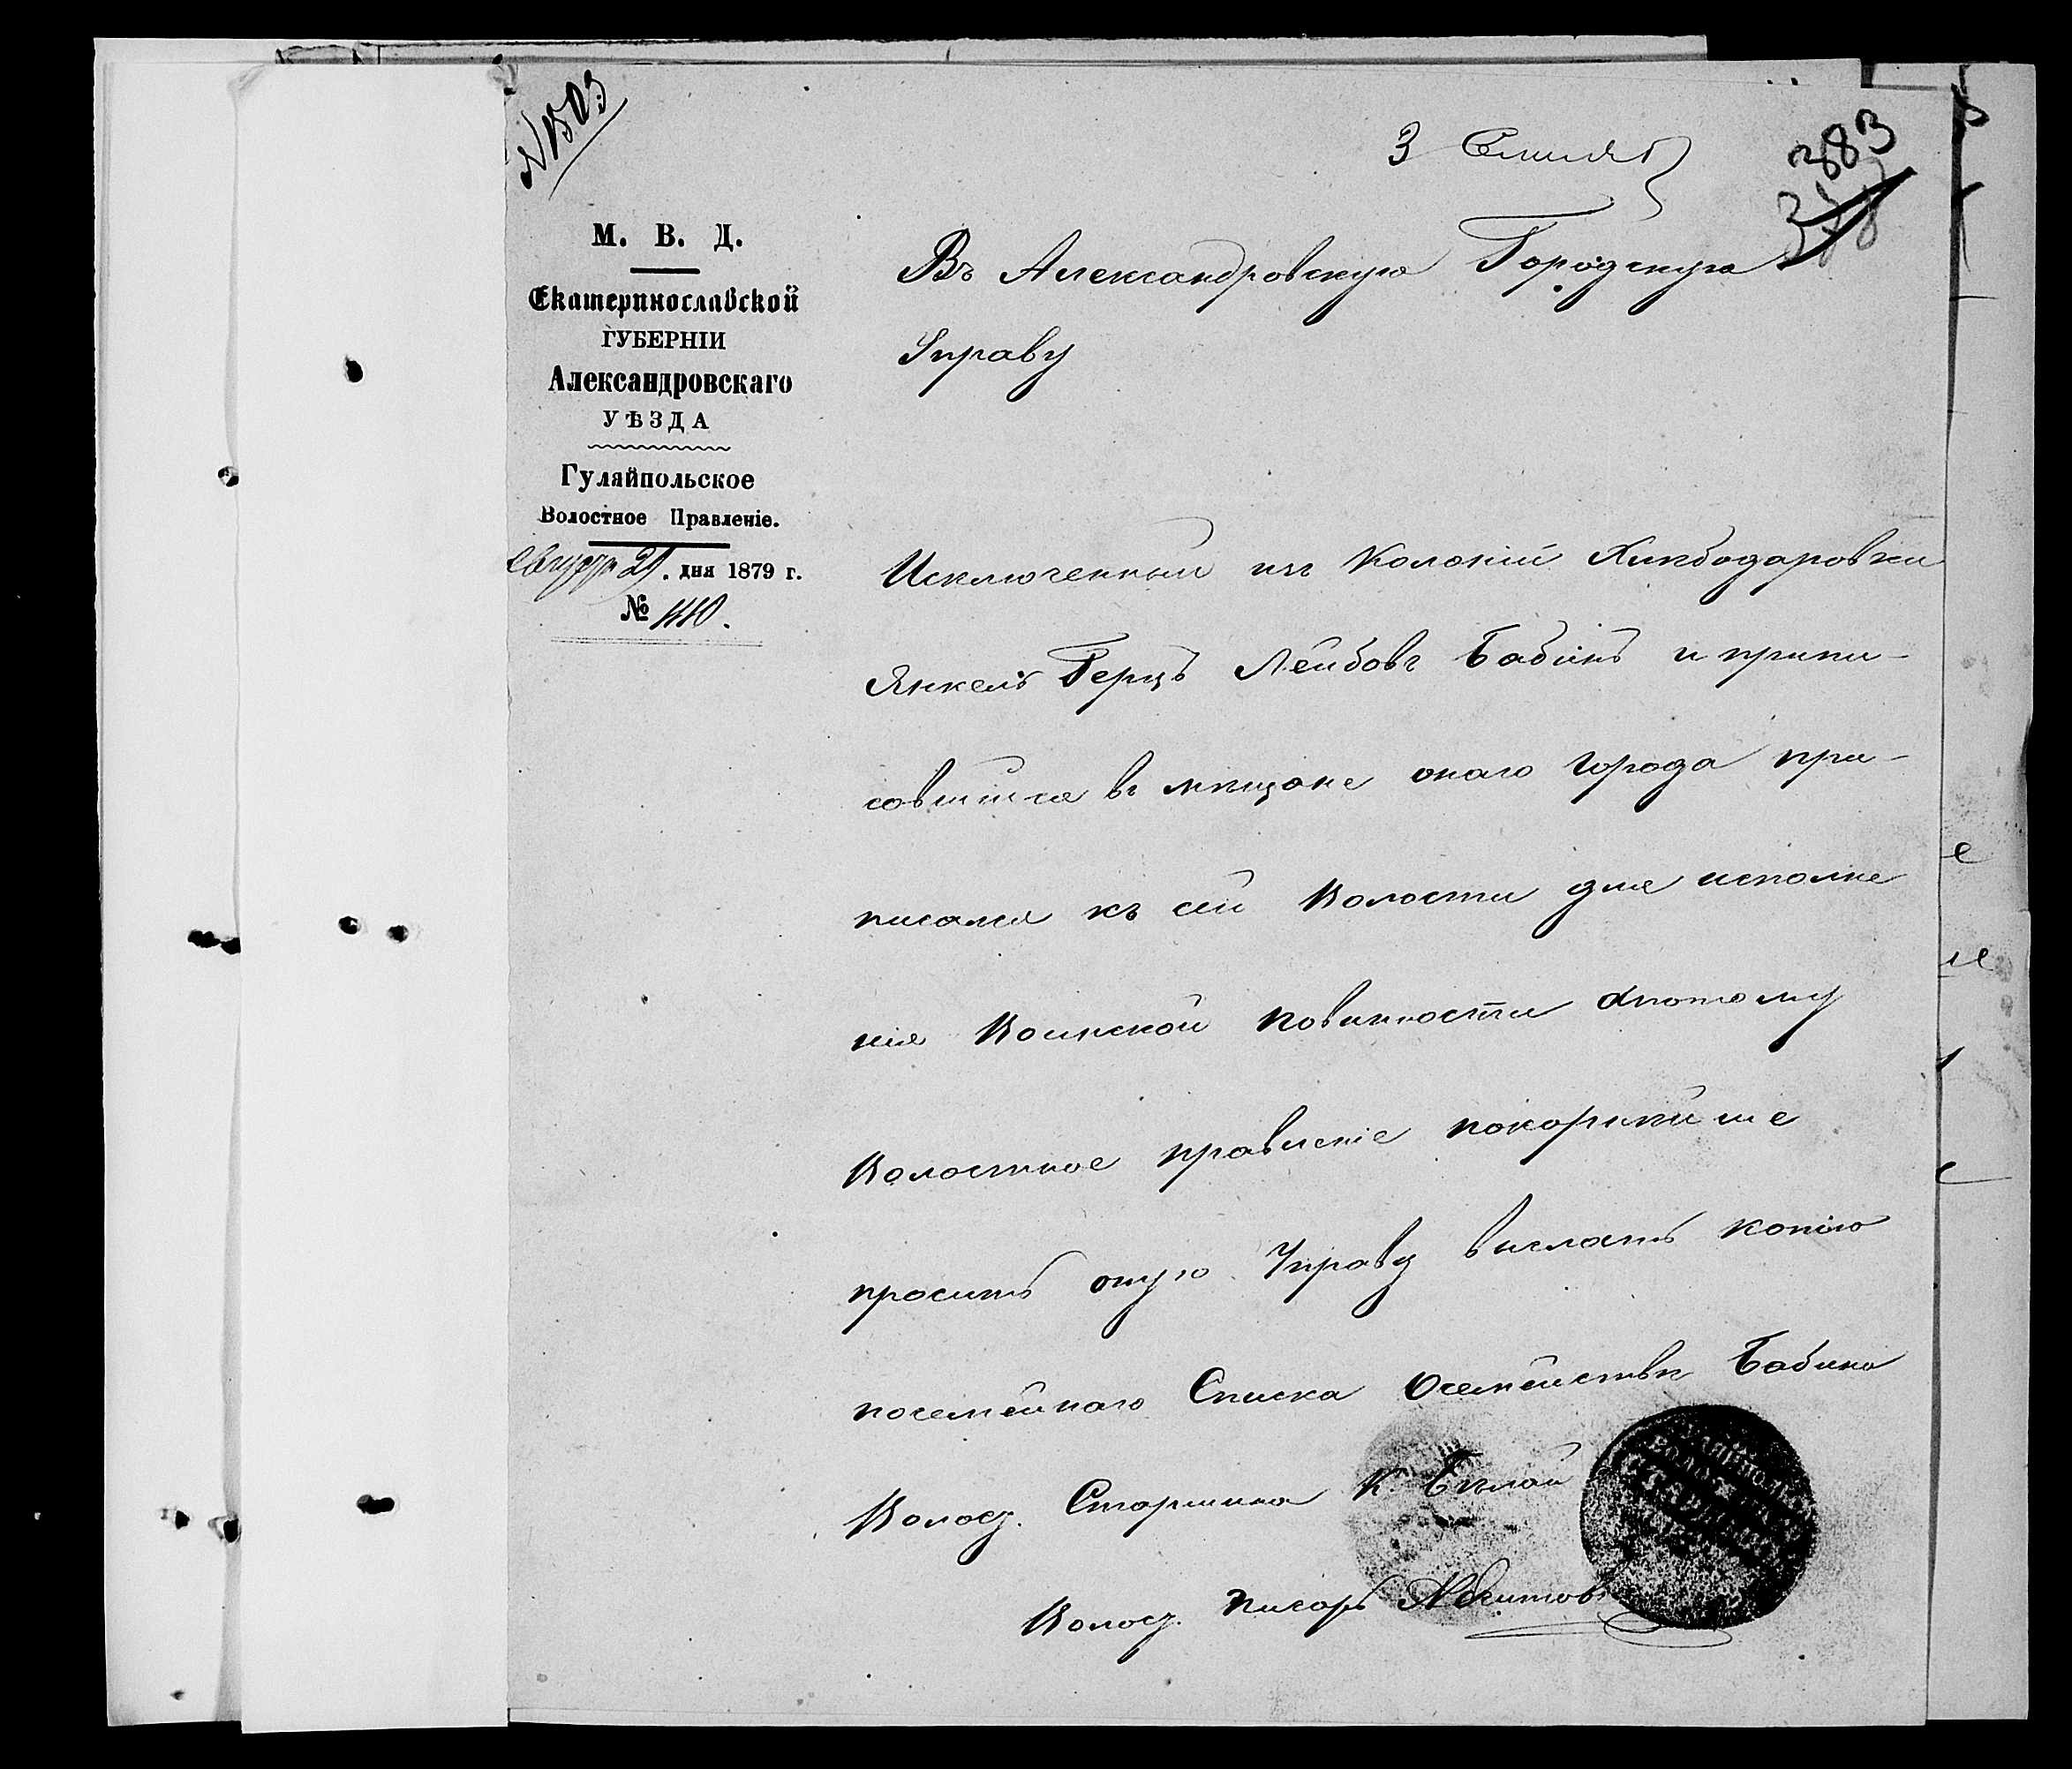 N 1503
3 Сентяб
383
378
М. В. Д.
Екатеринославской
ГУБЕРНІИ
Александровскаго
УѢЗДА
Гуляйпольское
Волостное Правленіе.
Августа 29. дня 1879 г.
№ 1110.
Въ Александровскую Городскую
Управу
Исключенный изъ Колоніи Хлѣбодаровки
Янкель Герцъ Лейбовъ Бабинъ и припи-
савшійся въ мѣщане онаго города при-
писался къ сей Волости для исполне
нія Воинской повинности апотому
Волостное правленіе покорнѣйше
проситъ оную Управу выслать копію
посемейнаго Списка Осемействѣ Бабина
Волост. Старшина К. Бѣлай
Волост. писарь